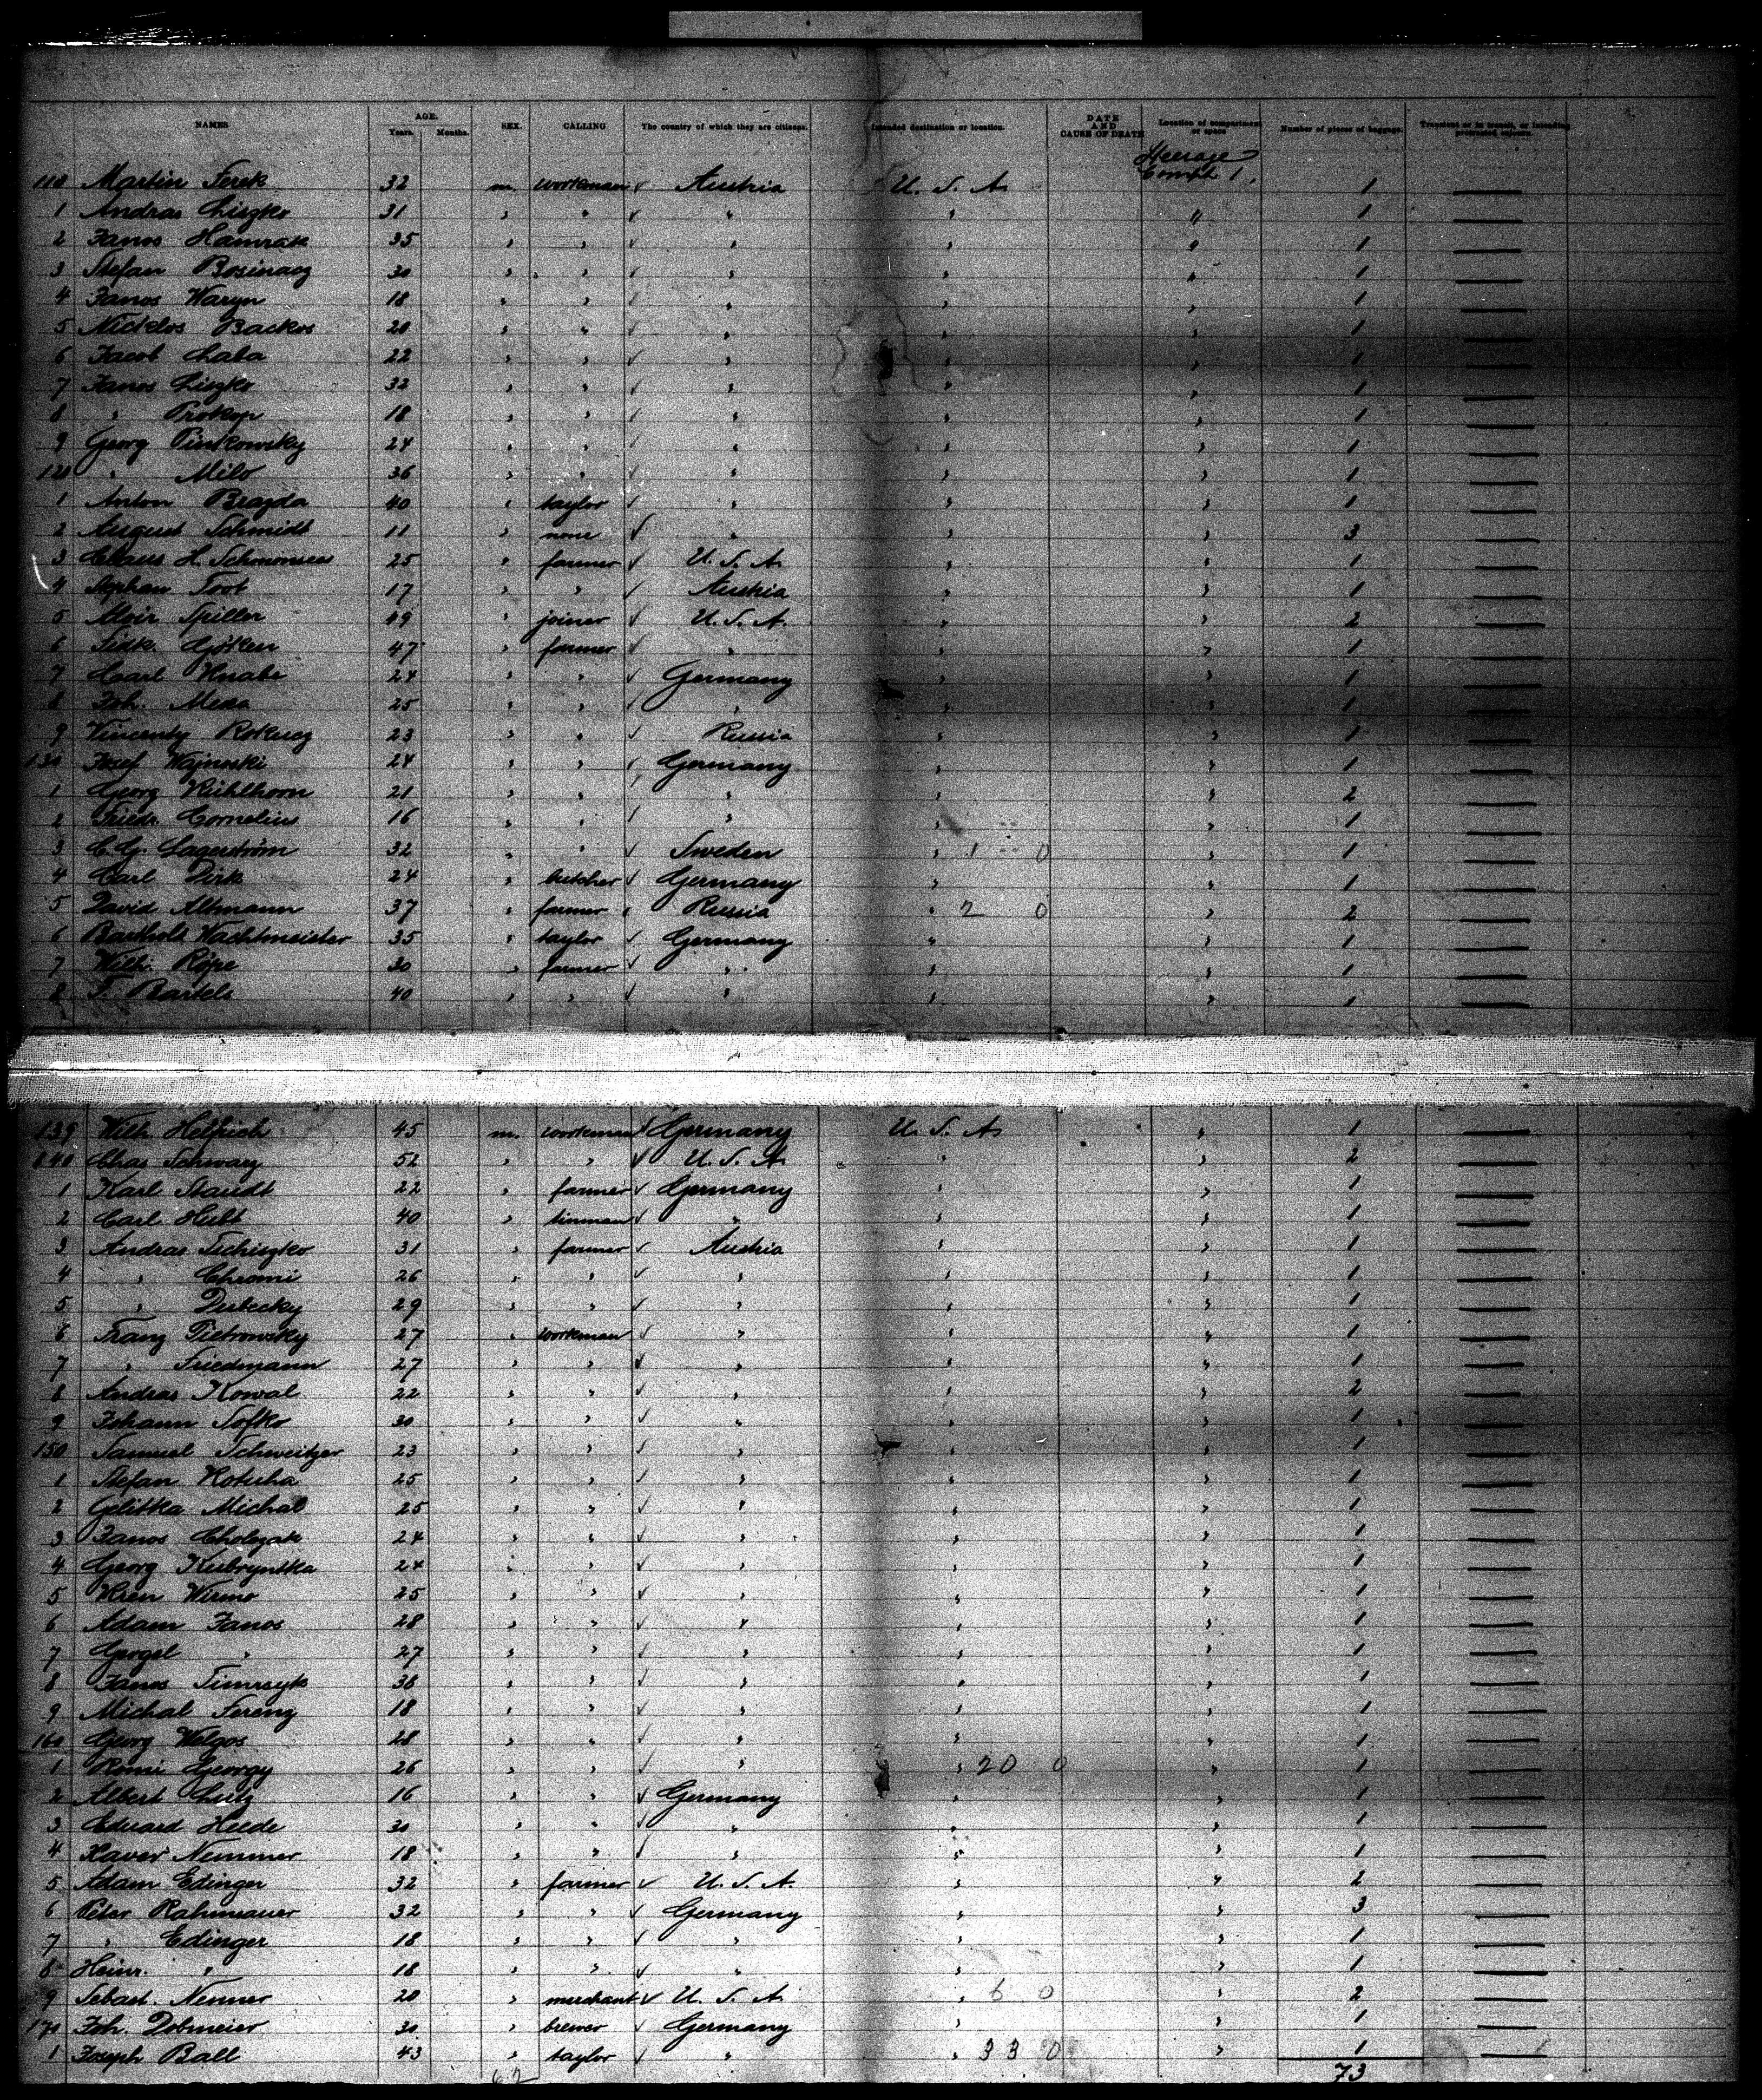 NAMES AGE. Years. Months. SEX. CALLING The country of which they are citizens. Intended destination or location. DATE AND CAUSE OF DEATH Location of compartment or space Number of pieces of baggage. Transient or in transit, or intending protracted sojourn.
Steerage
110 Martin Ferek 32 m. workman ✓ Austria U. S. A. Compt 1. 1 —
1 Andras Liszko 31 " " ✓ " " " 1 —
2 Janos Hamrak 35 " " ✓ " " " 1 —
3 Stefan 30 " " ✓ " " " 1 —
4 Janos Waryn 18 " " ✓ " " " 1 —
5 Nicklos Backos 20 " " ✓ " " " 1 —
6 Jacob Laba 22 " " ✓ " " " 1 —
7 Janos Liszko 32 " " ✓ " " " 1 —
8 " Prokop 18 " " ✓ " " " 1 —
9 Georg 24 " " ✓ " " " 1 —
120 " Milo 36 " " ✓ " " " 1 —
1 Anton Brajda 40 " taylor ✓ " " " 1 —
2 August Schmidt 11 " none ✓ " " " 3 —
3 Claus H. 25 " farmer ✓ U. S. A. " " 1 —
4 Stephan Toot 17 " " ✓ Austria " " 1 —
5 Alois Spiller 49 " joiner ✓ U. S. A. " " 2 —
6 47 " farmer ✓ " " " 1 —
7 Carl Knabe 24 " " ✓ Germany " " 1 —
8 Joh. 25 " " ✓ " " " 1 —
9 Vincenty 23 " " ✓ Russia " " 1 —
130 Josef Wajnoski 24 " " ✓ Germany " " 1 —
1 Georg Kühlthorn 21 " " ✓ " " " 2 —
2 Friedr. Cornelius 16 " " ✓ " " " 1 —
3 C. G. Lagerström 32 " " ✓ Sweden " 1 - 0 " 1 —
4 Carl Dirk 24 " butcher ✓ Germany " " 1 —
5 David Altmann 37 " farmer ✓ Russia " 2 0 " 2 —
6 Barthold Wachtmeister 35 " taylor ✓ Germany " " 1 —
7 Wilh. Röpe 30 " farmer ✓ " " " 1 —
8 Bartels 40 " " ✓ " " " 1 —
139 Wilh. Helfrich 45 m. workman ✓ Germany U. S. A. " 1 —
140 Chas Schwarz 52 " " ✓ U. S. A. " " 2 —
1 Karl Staudt 22 " farmer ✓ Germany " " 1 —
2 Carl 40 " tinman ✓ " " " 1 —
3 Andras Tschiszko 31 " farmer ✓ Austria " " 1 —
4 " Chromi 26 " " ✓ " " " 1 —
5 " Dubecky 29 " " ✓ " " " 1 —
6 Franz Pietrowsky 27 " workman ✓ " " " 1 —
7 " Friedmann 27 " " ✓ " " " 1 —
8 Andras Kowal 22 " " ✓ " " " 2 —
9 Johann Sofko 30 " " ✓ " " " 1 —
150 Samuel Schweitzer 23 " " ✓ " " " 1 —
1 Stefan Kotuha 25 " " ✓ " " " 1 —
2 Michal 25 " " ✓ " " " 1 —
3 Janos Cholezak 24 " " ✓ " " " 1 —
4 Georg Kubryntka 24 " " ✓ " " " 1 —
5 Wirmo 25 " " ✓ " " " 1 —
6 Adam Janos 28 " " ✓ " " " 1 —
7 Gergel " 27 " " ✓ " " " 1 —
8 Janos 36 " " ✓ " " " 1 —
9 Michal Ferenz 18 " " ✓ " " " 1 —
160 Georg Welgos 28 " " ✓ " " " 1 —
1 Georgy 26 " " ✓ " " 20 0 " 1 —
2 Albert Lutz 16 " " ✓ Germany " " 1 —
3 Eduard Heede 30 " " ✓ " " " 1 —
4 Xaver Nemmer 18 " " ✓ " " " 1 —
5 Adam Edinger 32 " farmer ✓ U. S. A. " " 2 —
6 Peter Rahmeauer 32 " " ✓ Germany " " 3 —
7 " Edinger 18 " " ✓ " " " 1 —
8 Heinr. " 18 " " ✓ " " " 1 —
9 Sebast. Nenner 20 " merchant ✓ U. S. A. " 6 0 " 2 —
170 Joh. Dobmeier 30 " brewer ✓ Germany " " 1 —
1 Joseph Ball 43 " taylor ✓ " " 33 0 " 1 —
62 73